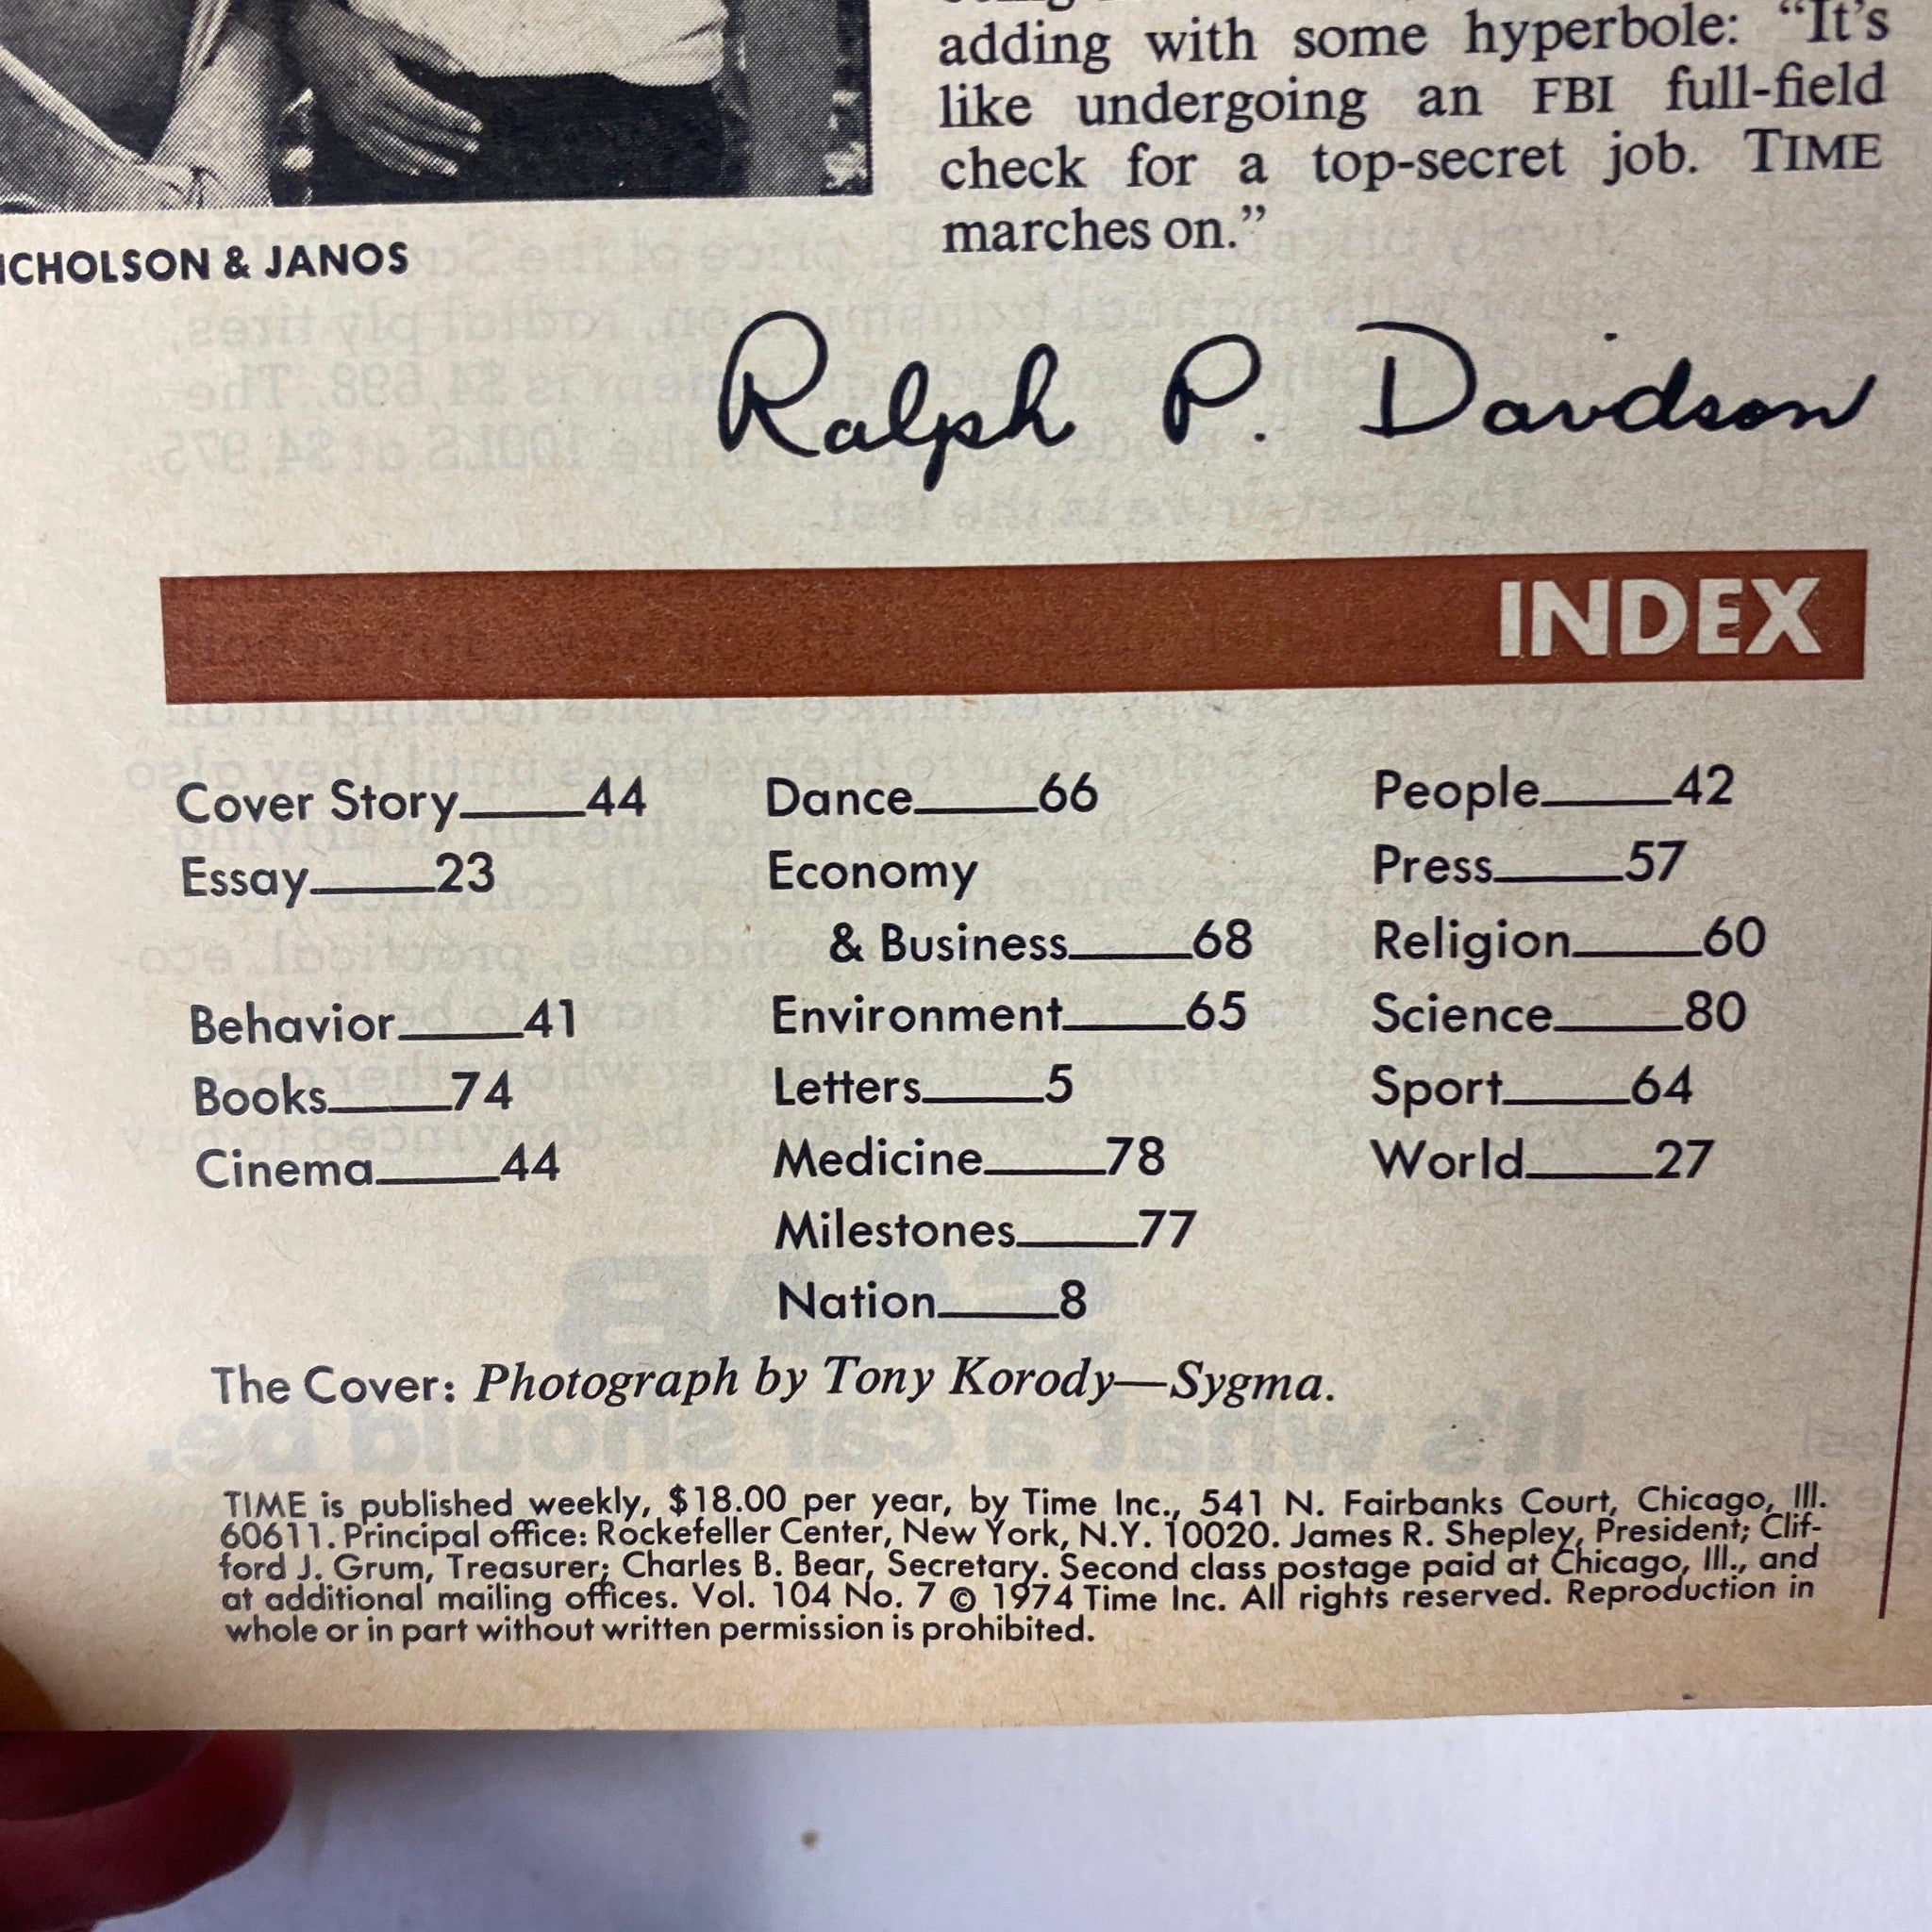 adding with some hyperbole: “It's
like undergoing an FBI full-field
check for a top-secret job. TIME
marches on.”
ICHOLSON & JANOS
Ralph P. Davidson
INDEX
Cover Story____44
Essay____23
Behavior____41
Books____74
Cinema____44
Dance____66
Economy
& Business____68
Environment____65
Letters____5
Medicine____78
Milestones____77
Nation____8
People____42
Press____57
Religion____60
Science____80
Sport____64
World____27
The Cover: Photograph by Tony Korody—Sygma.
TIME is published weekly, $18.00 per year, by Time Inc., 541 N. Fairbanks Court, Chicago, Ill.
60611. Principal office: Rockefeller Center, New York, N.Y. 10020. James R. Shepley, President; Clif-
ford J. Grum, Treasurer; Charles B. Bear, Secretary. Second class postage paid at Chicago, Ill., and
at additional mailing offices. Vol. 104 No. 7 © 1974 Time Inc. All rights reserved. Reproduction in
whole or in part without written permission is prohibited.